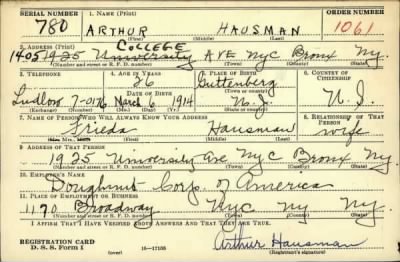 SERIAL NUMBER 1. NAME (Print) ORDER NUMBER
780 ARTHUR HAUSMAN 1061
(First) (Middle) (Last)
2. ADDRESS (Print) COLLEGE
1405 1925 University AVE NYC Bronx NY.
(Number and street or R. F. D. number) (Town) (County) (State)
3. TELEPHONE 4. AGE IN YEARS 5. PLACE OF BIRTH 6. COUNTRY OF CITIZENSHIP
26 Guttenberg
DATE OF BIRTH
Ludlow 7-0176 March 6 1914 N. J.
(Exchange) (No.) (Mo.) (Day) (Yr.) (State or country)
7. NAME OF PERSON WHO WILL ALWAYS KNOW YOUR ADDRESS 8. RELATIONSHIP OF THAT PERSON
Frieda Hausman wife
(First) (Middle) (Last)
9. ADDRESS OF THAT PERSON
1925 University Ave NYC Bronx NY.
(Number and street or R. F. D. number) (Town) (County) (State)
10. EMPLOYER'S NAME
Doughnut Corp. of America
11. PLACE OF EMPLOYMENT OR BUSINESS
1170 Broadway NYC NY NY.
(Number and street or R. F. D. number) (Town) (County) (State)
I AFFIRM THAT I HAVE VERIFIED ABOVE ANSWERS AND THAT THEY ARE TRUE.
REGISTRATION CARD
D. S. S. FORM 1 (over) Arthur Hausman
(Registrant's signature)